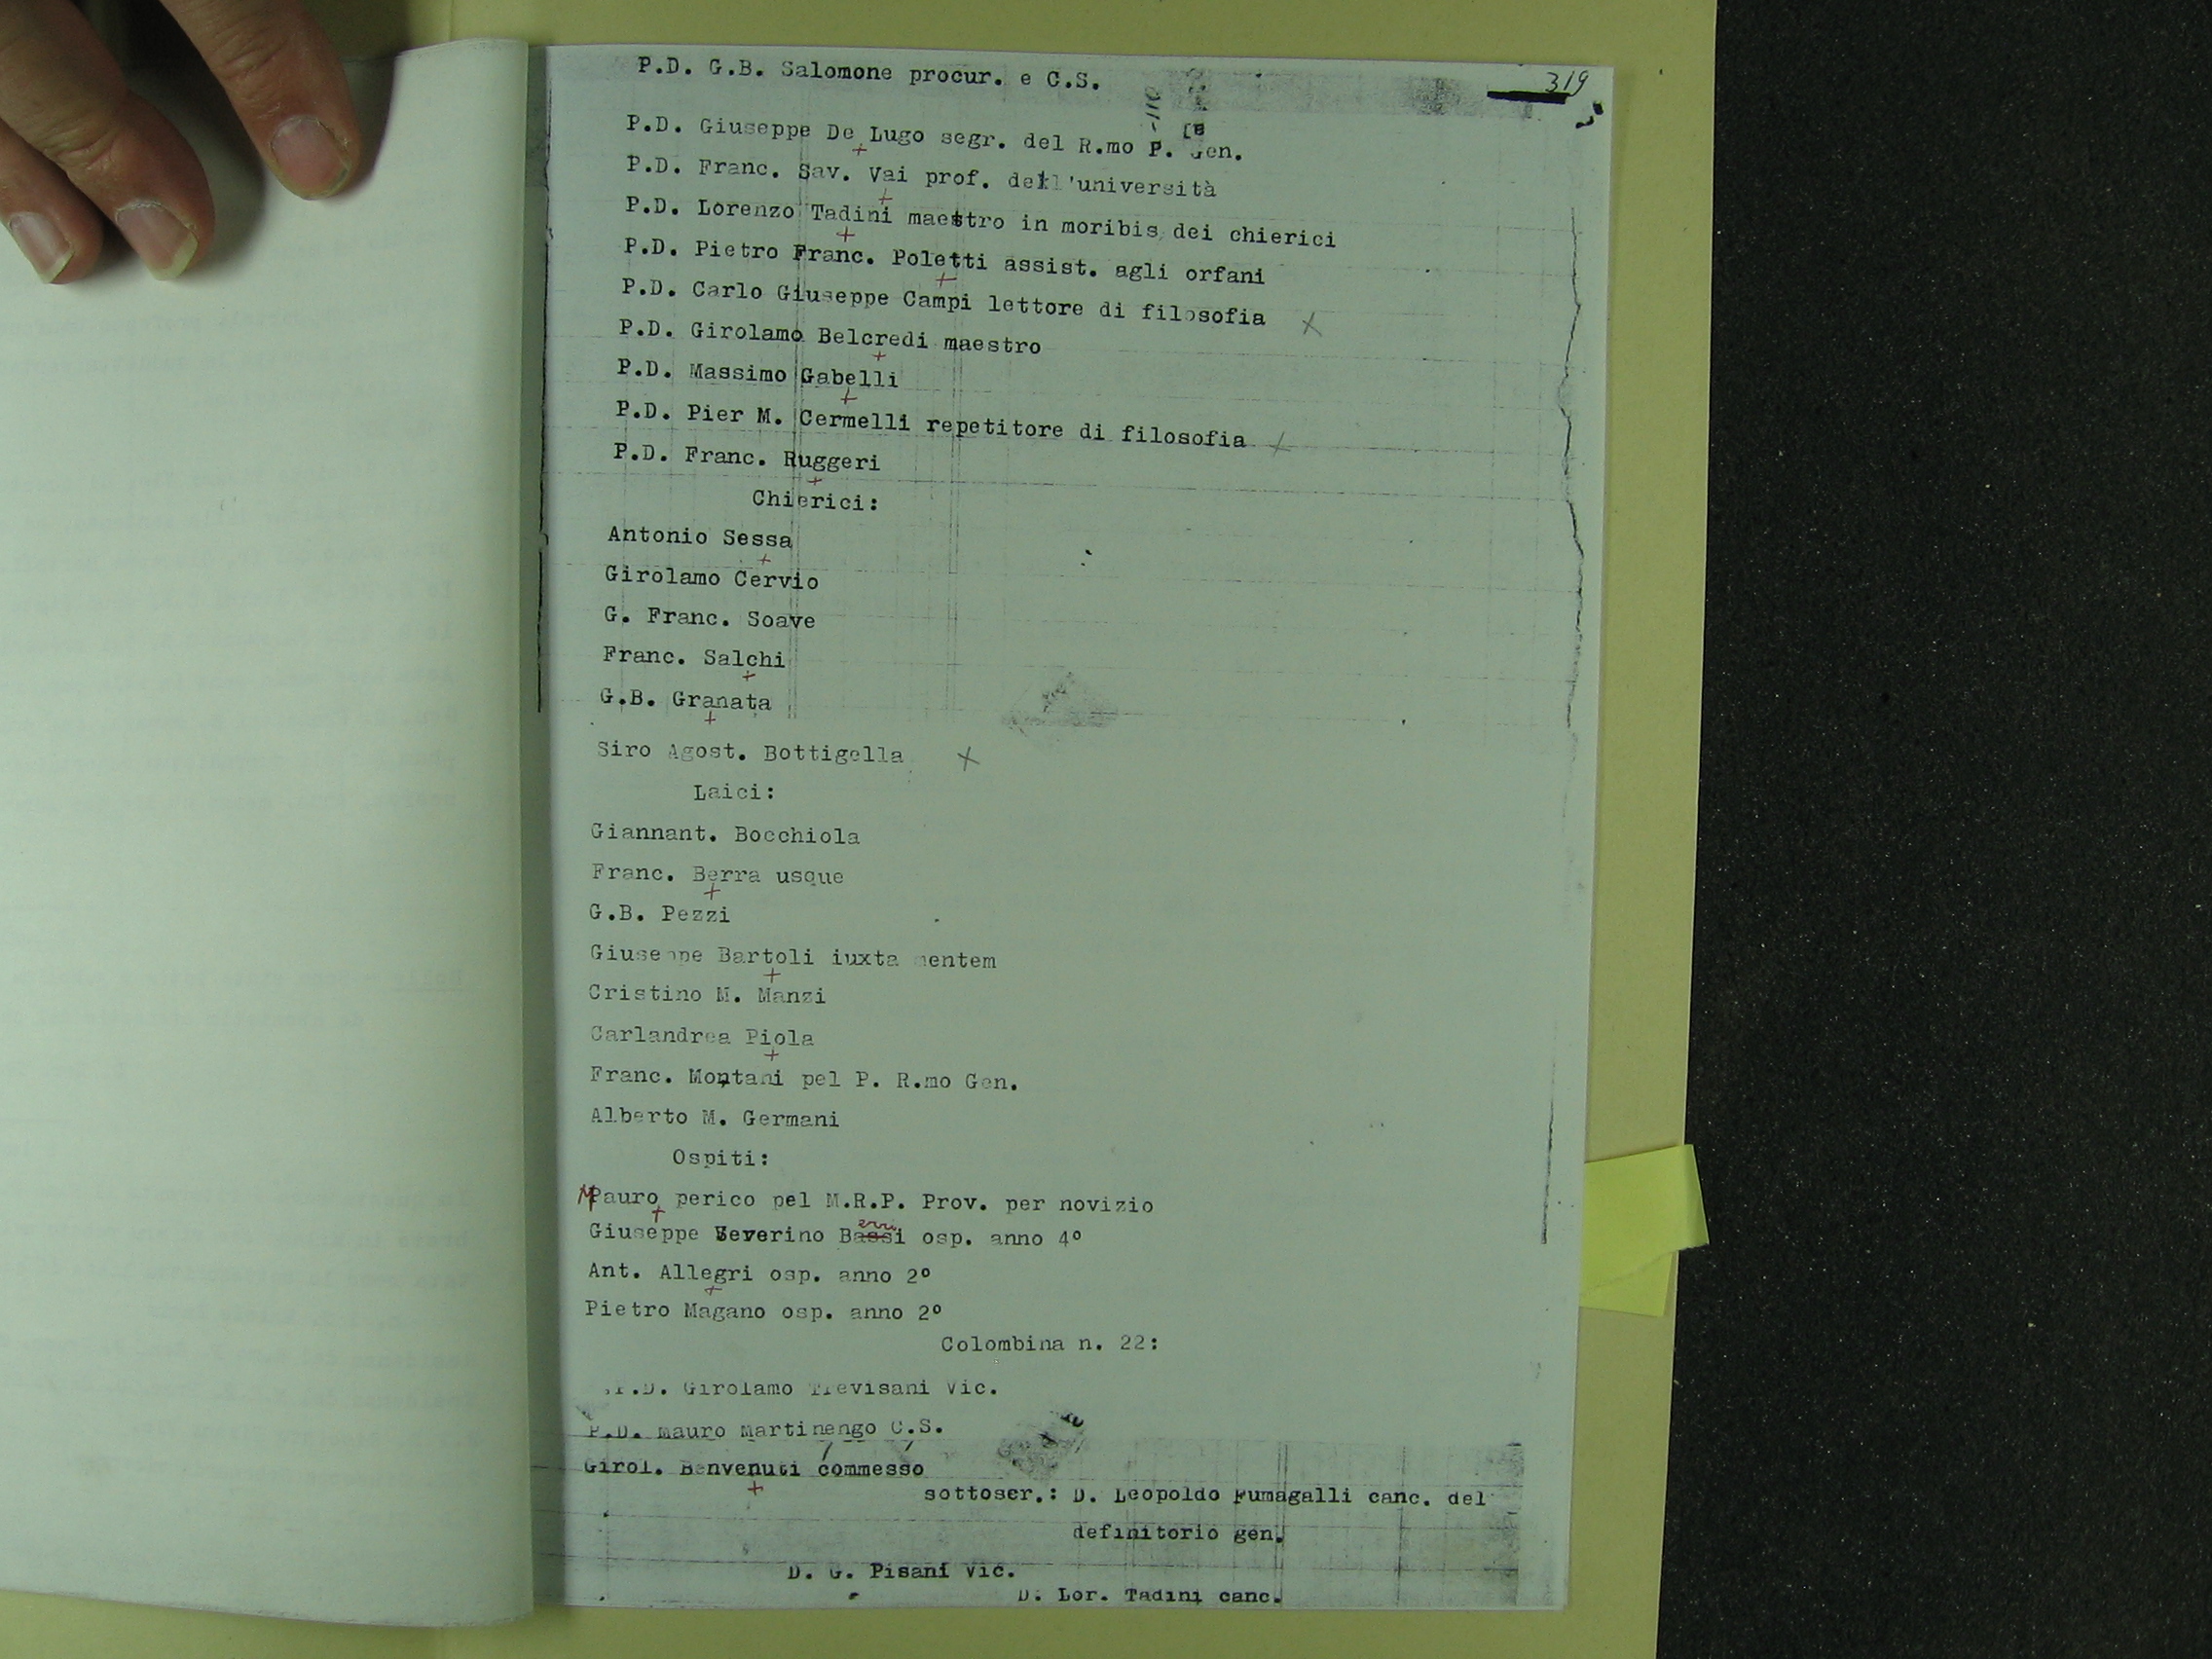 319
P.D. G.B. Salomone procur. e C.S.
P.D. Giuseppe De Lugo segr. del R.mo P. Gen.
P.D. Franc. Sav. Vai prof. dell'università
P.D. Lorenzo Tadini maestro in moribis dei chierici
P.D. Pietro Franc. Poletti assist. agli orfani
P.D. Carlo Giuseppe Campi lettore di filosofia
P.D. Girolamo Belcredi maestro
P.D. Massimo Gabelli
P.D. Pier M. Cermelli repetitore di filosofia
P.D. Franc. Ruggeri
Chierici:
Antonio Sessa
Girolamo Cervio
G. Franc. Soave
Franc. Salchi
G.B. Granata
Siro Agost. Bottigella
Laici:
Giannant. Bocchiola
Franc. Berra usque
G.B. Pezzi
Giuseppe Bartoli iuxta mentem
Cristino M. Manzi
Carlandrea Piola
Franc. Montani pel P. R.mo Gen.
Alberto M. Germani
Ospiti:
Mauro perico pel M.R.P. Prov. per novizio
Giuseppe Severino Berri osp. anno 4º
Ant. Allegri osp. anno 2º
Pietro Magano osp. anno 2º
Colombina n. 22:
P.D. Girolamo Trevisani Vic.
P.D. Mauro Martinengo C.S.
Girol. Benvenuti commesso
sottoscr.: D. Leopoldo Fumagalli canc. del
definitorio gen.
D. G. Pisani Vic.
D. Lor. Tadini canc.